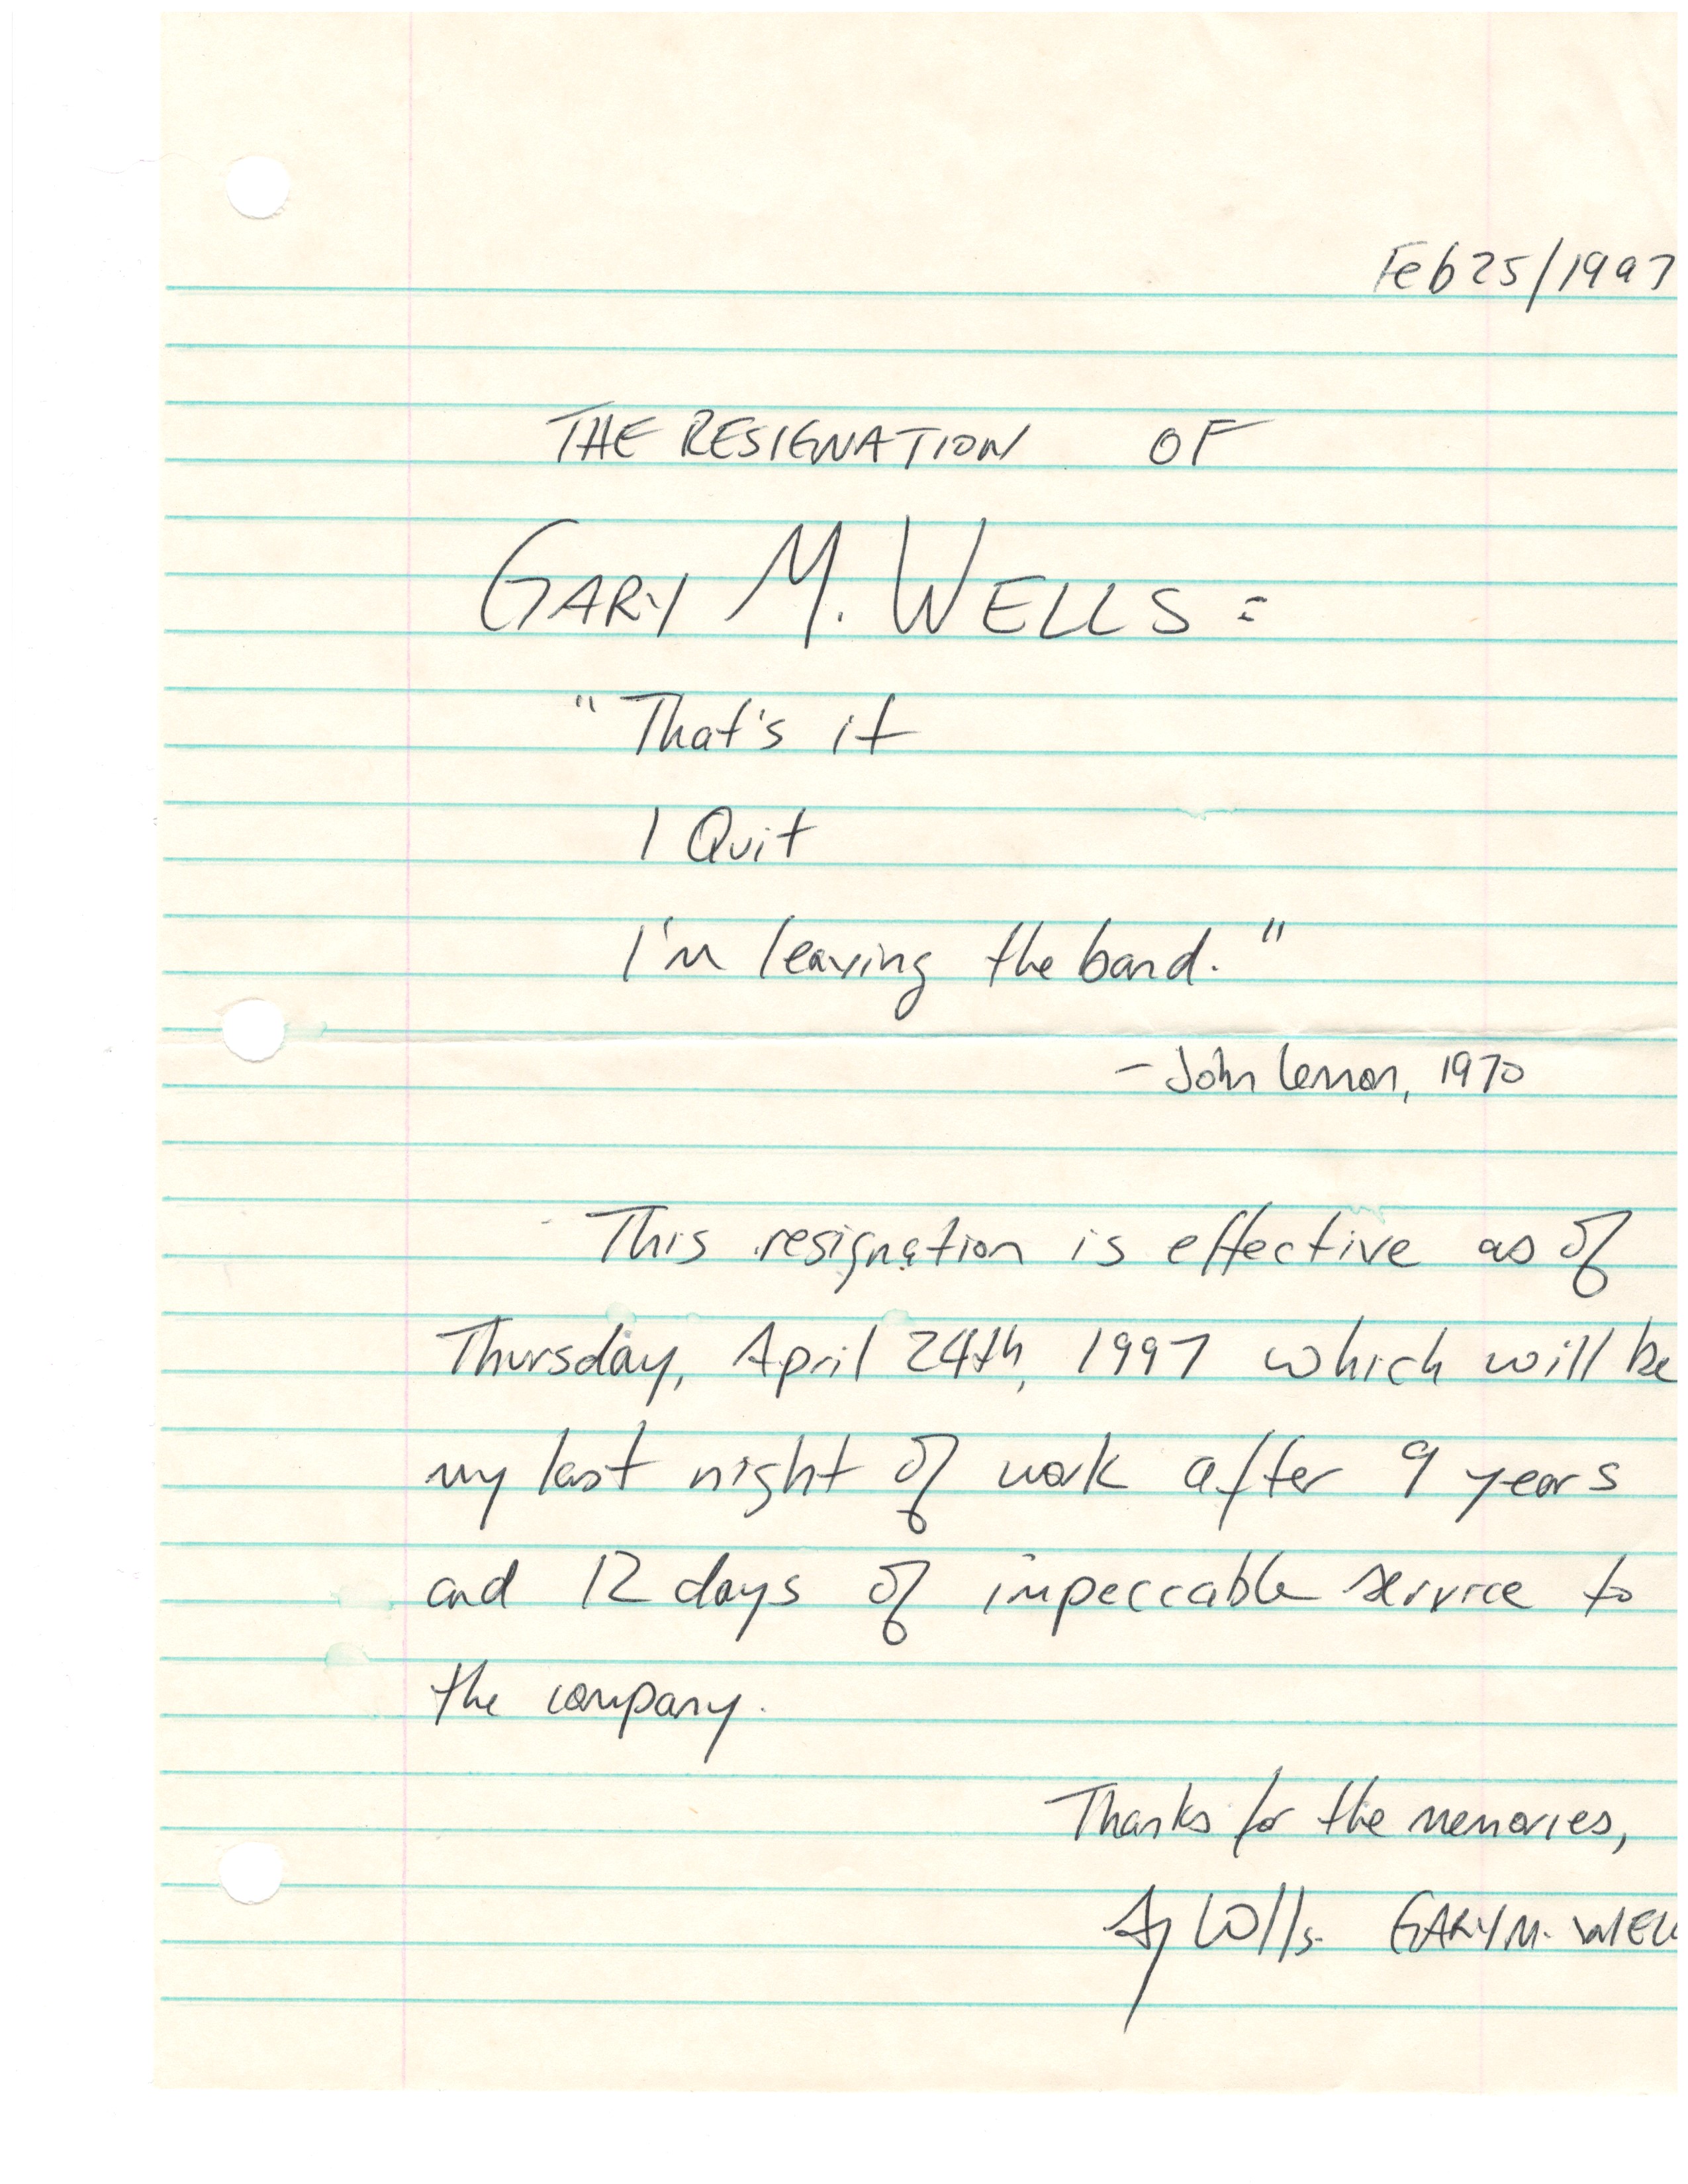 Feb 25/1997
THE RESIGNATION OF
GARY M. WELLS:
"That's it
I Quit
I'm leaving the band."
- John Lennon, 1970
This resignation is effective as of
Thursday, April 24th, 1997 which will be
my last night of work after 9 years
and 12 days of impeccable service to
the company.
Thanks for the memories,
GARY M. WELL